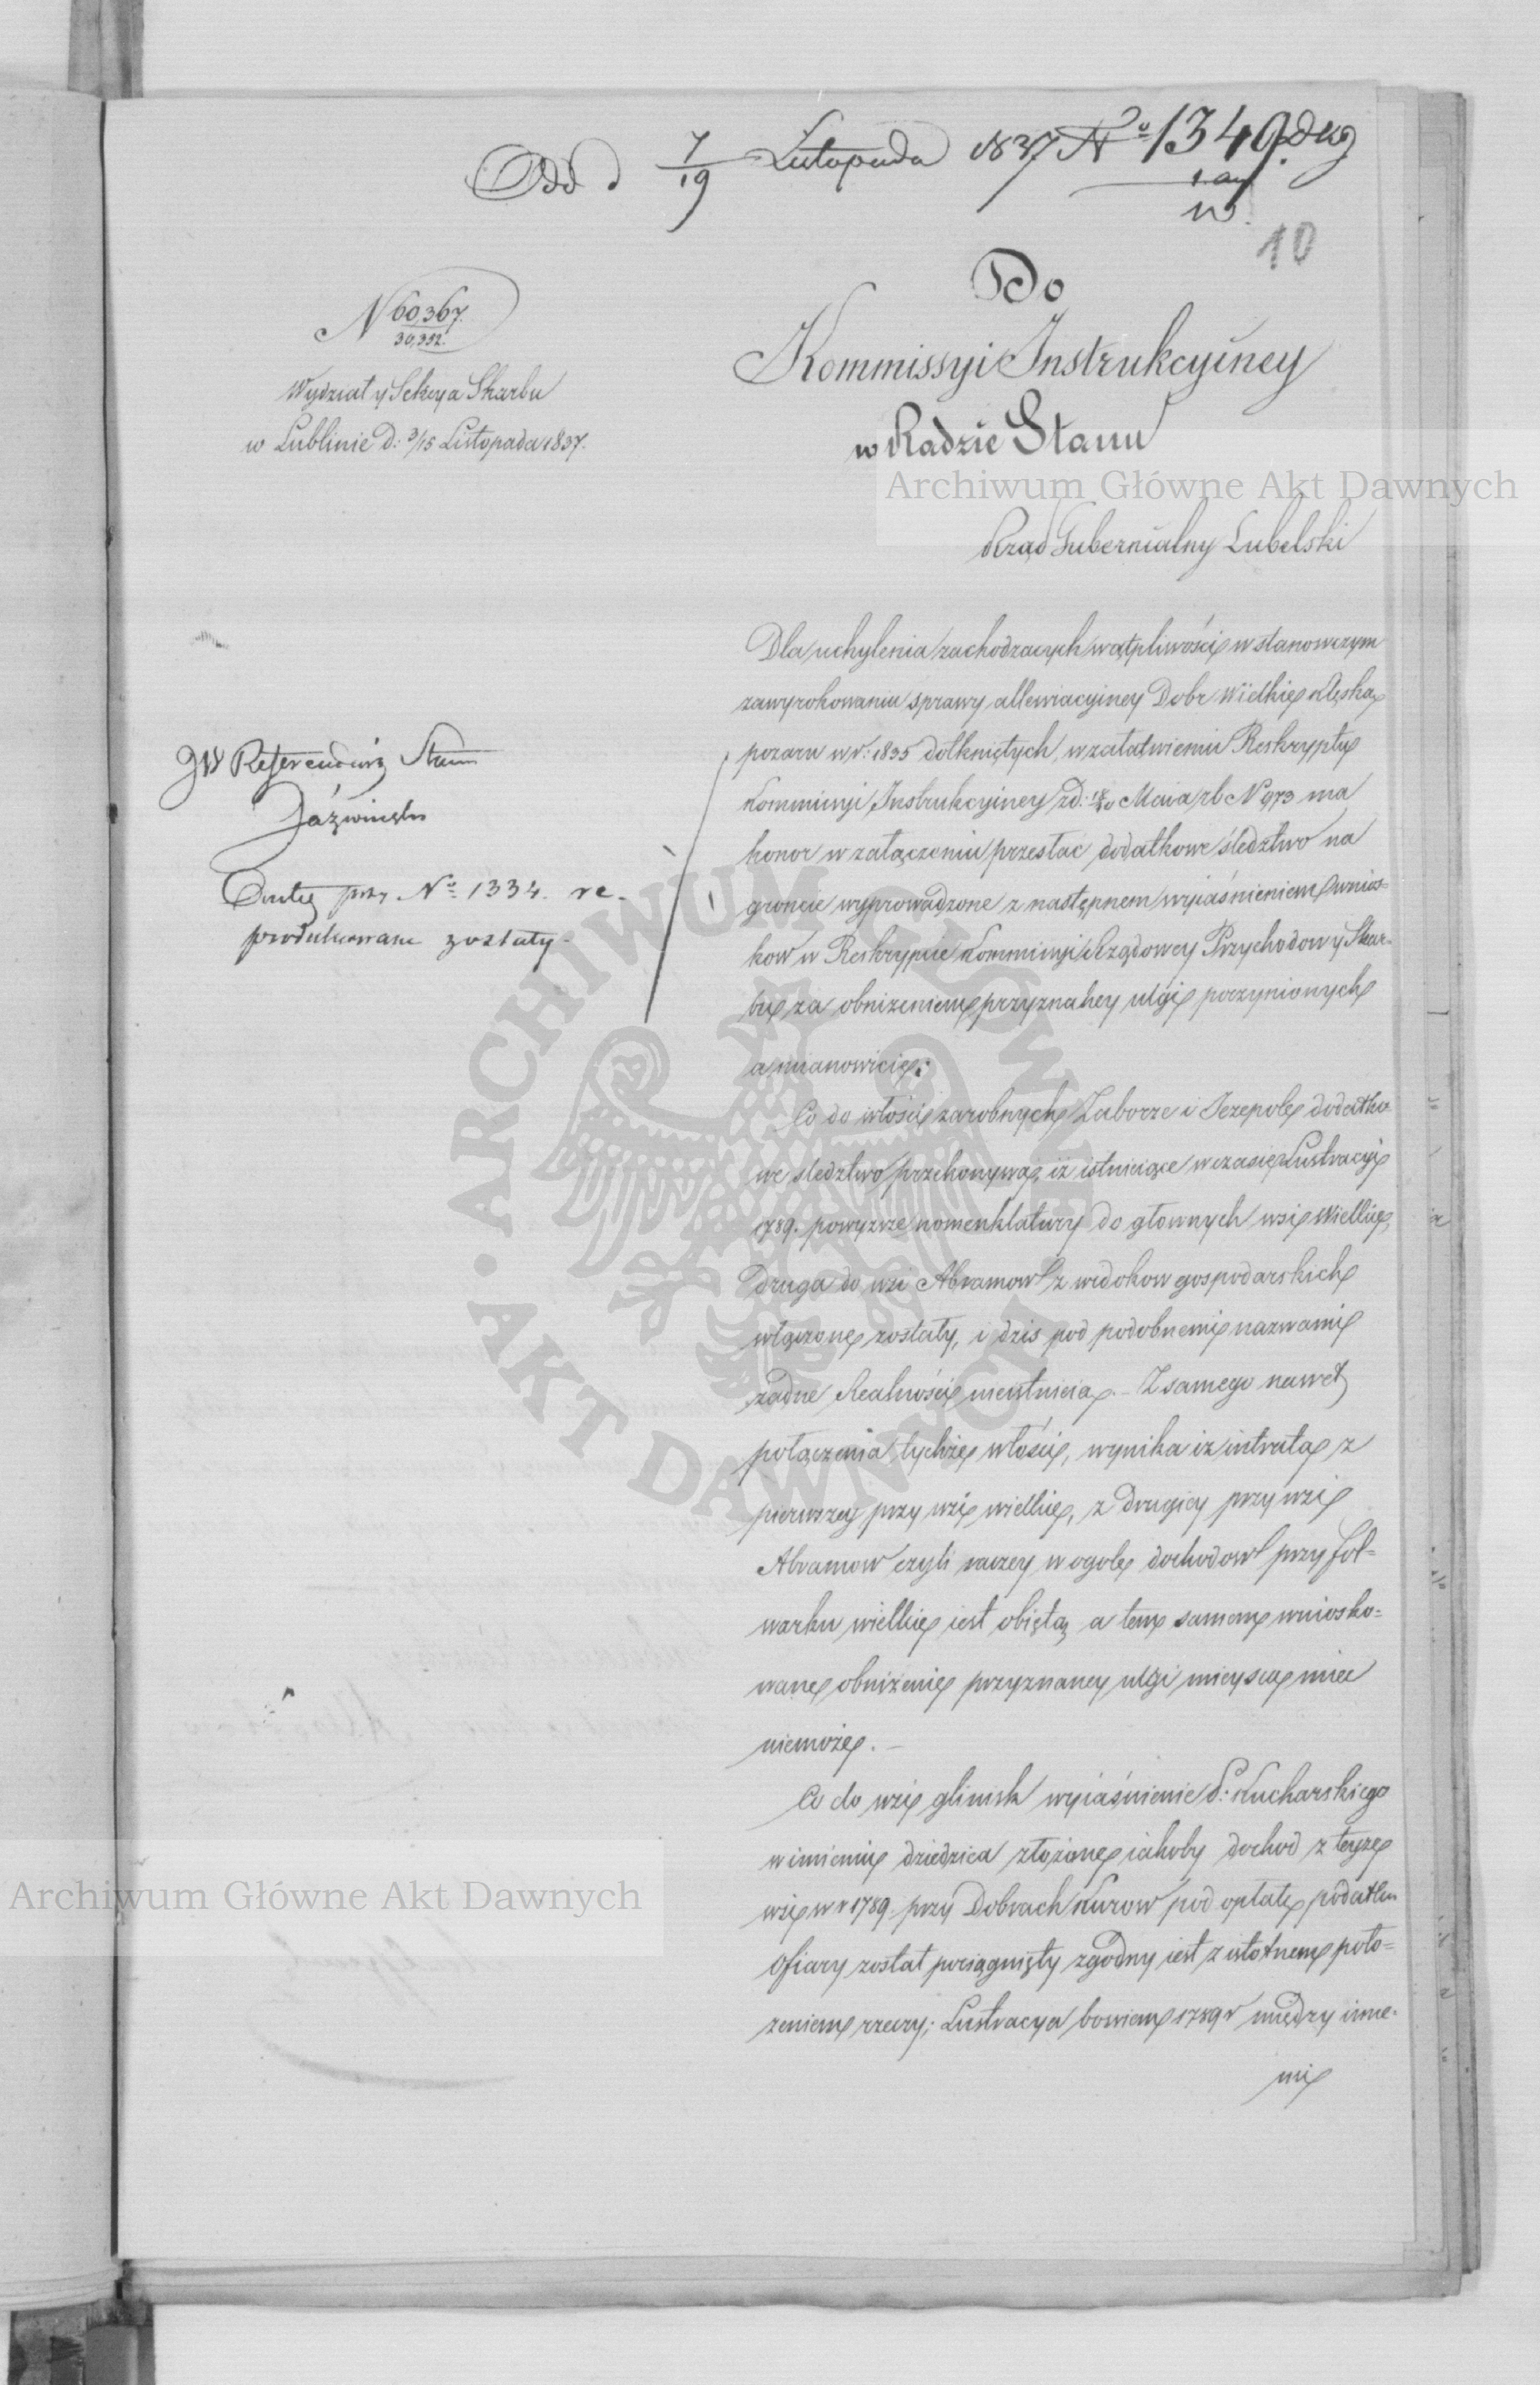 Odd d 7/19 Listopada 1837 No 1349
10
N 60,367.
30,392.
Wydział y Sekcya Skarbu
w Lublinie D: 3/15 Listopada 1837.
Do
Kommissyi Instrukcyiney
w Radzie Stanu
Rząd Gubernialny Lubelski
JW Referendarz Stanu
Jaźwiński
przy No 1334. re-
produkowane zostały.
Dla uchylenia zachodzących wątpliwości w stanowczym
zawyrokowaniu sprawy allewiacyiney Dobr Wielkie klęską
pozaru w r: 1835 dotkniętych, w załatwieniu Reskryptu
Kommissyi Instrukcyiney z d: 18/30 Maia rb N 973 ma
honor w załączeniu przesłać dodatkowe śledztwo na
gruncie wyprowadzone z następnem wyiaśnieniem wnios-
kow w Reskrypcie Kommissyi Rządowey Przychodow y Skar-
bu za obniżeniem przyznaney ulgi poczynionych
a mianowicie:
Co do włości zarobnych Zaborze i Jezepole dodatko
we śledztwo przekonywa, iż istnieiące w czasie Lustracyi
1789. powyższe nomenklatury do głownych wsi Wielkie,
druga do wsi Abramow z widokow gospodarskich
włączone zostały, i dzis pod podobnemi nazwami
żadne Realności nieistnieią. – Z samego nawet
połączenia tychże włości, wynika iż intrata z
pierwszey przy wsi wielkie, z drugiey przy wsi
Abramow czyli raczey w ogole dochodow przy fol=
warku wielkie iest obięta, a tem samem wniosko=
wane obniżenie przyznaney ulgi mieysca mieć
niemoże. –
Co do wsi glinisk wyiaśnienie P: Kucharskiego
w imieniu dziedzica złożone iakoby dochod z teyze
wsi w r 1789 przy Dobrach Kurow pod opłatę podatku
Ofiary został pociągnięty zgodny iest z istotnem poło=
zeniem rzeczy; Lustracya bowiem 1789 r między inne-
mi